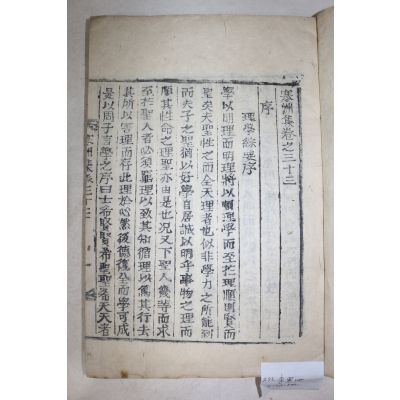 寒洲集卷之三十三
序
理學綜要序
學以明理而明理將以順理學而至於理順則賢而
聖矣夫聖性之而全天理者也似非學力之所能到
而夫子之聖猶以好學自居誠以明乎事物之理而
順其性命之理聖亦由是也況又下聖人幾等而求
至於聖人者必須窮理以致其知循理以篤其行去
其所以害理而存此理於心然後德復全而學可成
是以周子言學之序曰士希賢賢希聖聖希天天者
寒洲集卷三十三